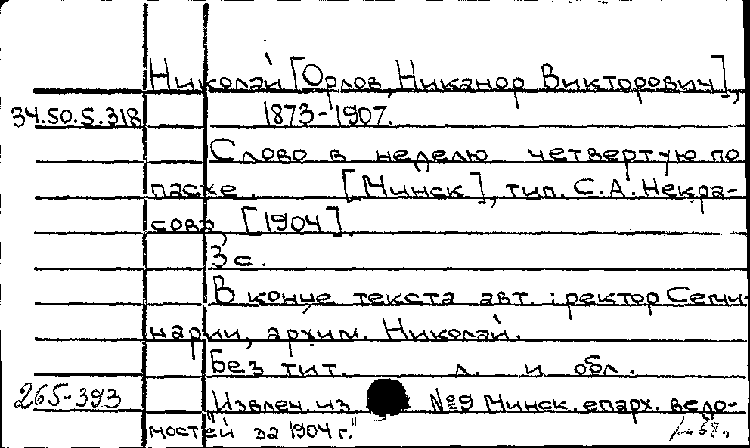 Николай [Орлов, Никанор Викторович],
34.50.5.318 1873-1907.
Слово в неделю четвертую по
пасхе. [Минск], тип. С.А. Некра-
сова, [1904].
3 с.
В конце текста авт.: ректор Семи-
нарии, архим. Николай.
Без тит. л. и обл.
265-393 Извлеч. из №9 Минск. епарх. ведо-
мостей за 1904 г."